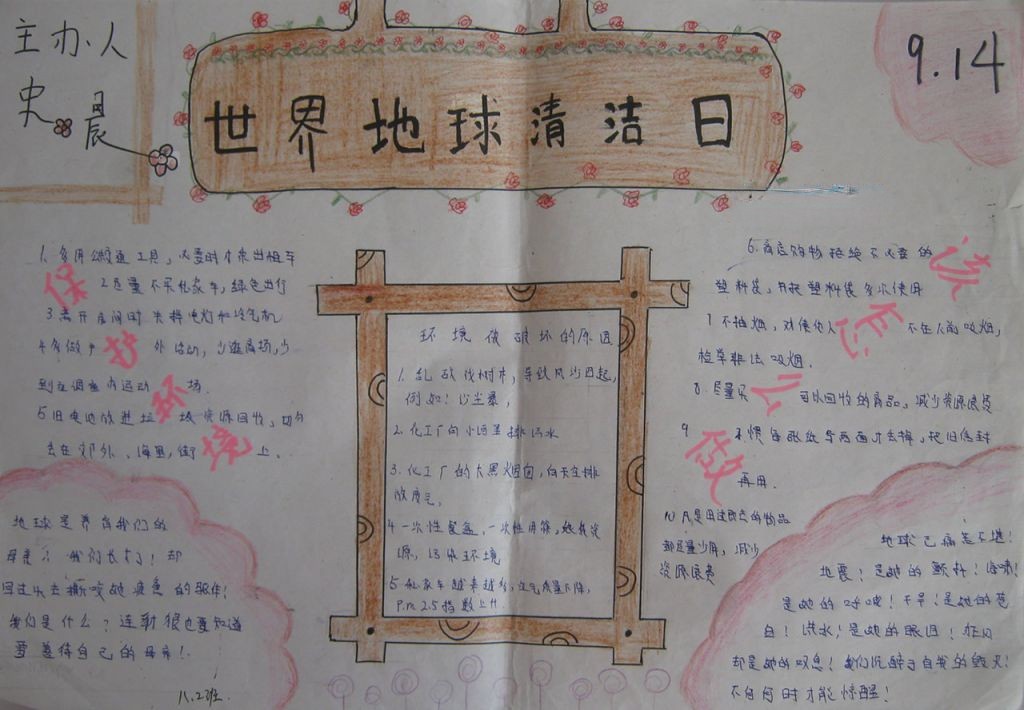 主办人
史晨
世界地球清洁日
9.14
保护环境
该怎么做
1.多用公共交通工具,必要时才乘出租车
2.尽量不买私家车,绿色出行
3.离开房间时关掉电灯和冷气机
4.多做户外活动,少逛商场,少
到在调查内运动场.
5.旧电池放进垃圾资源回收,切勿
丢在郊外、海里,街上.
环境被破坏的原因
1.乱砍伐树木,导致风沙四起,
例如:沙尘暴,
2.化工厂向小河里排污水
3.化工厂的大黑烟囱,向天空排
放废气.
4.一次性餐盒、一次性用筷,
源,污染环境
5.私家车越来越多,空气质量下降,
P.m 2.5指数上升.
6.商店购物拒绝不必要的
塑料袋,并把塑料袋多次使用
7.不抽烟,不在人前吸烟,
检举非法吸烟.
8.尽量买可以回收的商品,减少资源浪费
9.习惯每张纸写两面才丢掉,把旧信封
再用.
10.凡是用过即丢的物品
都尽量少用,减少
资源浪费
地球是养育我们的
母亲;我们长大了!却
回过头去撕咬她疲惫的躯体!
我们是什么?连动狼也要知道
要善待自己的母亲!.
八.2班.
地球已痛苦不堪!
地震!是她的颤抖!海啸!
是她的呼唤!干旱!是她的苍
白!洪水!是她的眼泪!狂风
却是她的叹息!我们沉醉于自我的毁灭!
不知何时才能惊醒!